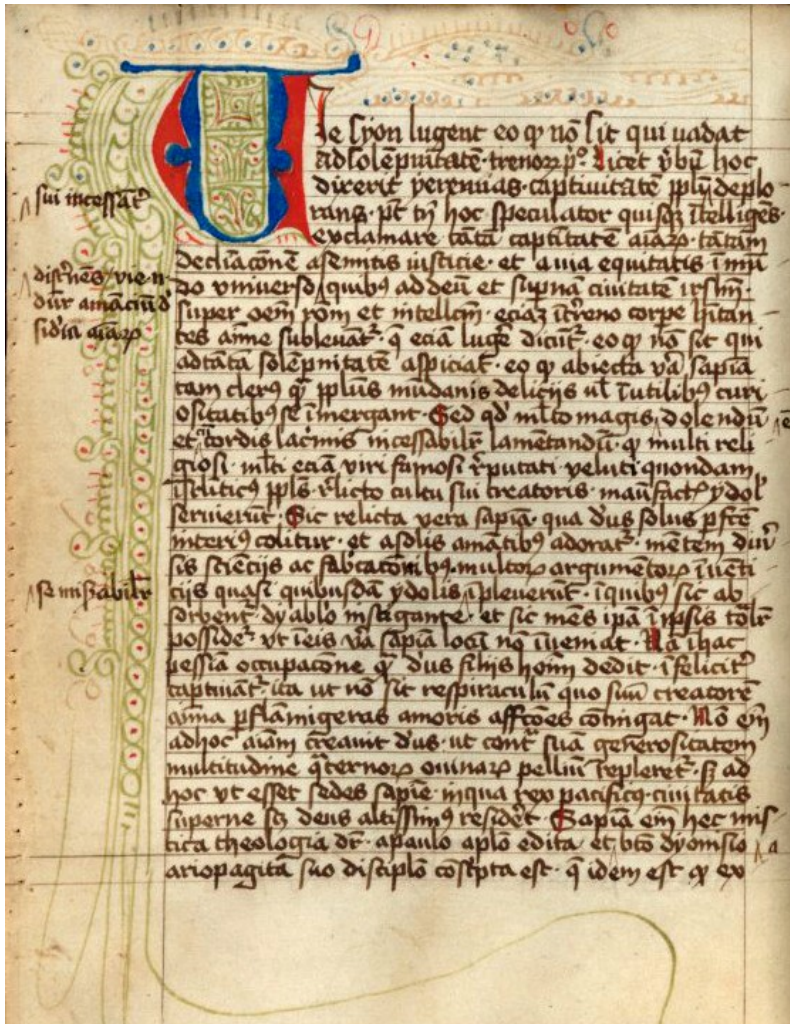 Uie syon lugent eo ꝙ nō sit qui uadat
ad solēpnitatē· trenoꝝ pͦ· Licet v̄bū hoc
dixerit yeremias· captivitatē ppl̄i deplo
rans· pt̄ tn̄ hoc speculator quisqꝫ ītelligēs·
exclamare tātā captītatē aīaꝝ· tātam
declīacōnē a semitis iusticie· et a uia equitatis ī mū
do vniuerso quibꝰ ad deū et supnā ciuitatē irl̄m̄·
super oēm rōm et intellc̄m· eciaꝫ ī tr̄reno corpe hītan
tes aīme subleuāt᷑· q̄ eciā lugē dicūt᷑· eo ꝙ nō sit qui
ad tātā solēpnitatē aspiciat· eo ꝙ abiecta vā sapīa
tam clerꝰ qͣ ppl̄us mūdanis deliciis ul̄ īutilibꝰ curi
ositatibꝰ se īmergant· Sed qd̓ ml̄to magis dolendū
et cordis lac̄mis incessabilr̄ lamētandū· ꝙ multi reli
giosi· ml̄ti eciā viri famosi r̄putati veluti quondam
isrl̄iticꝰ ppl̄s r̄licto cultu sui creatoris· manͧfact᷑ ydol᷑
seruierūt· Sic relicta vera sapīa· qua dn̄s solus pfc̄ē
interiꝰ colitur· et a solis amātibꝰ adorat᷑· mētem diūr
sis sciēciis ac fabͥcacōnibꝰ multoꝝ argumētoꝝ īuēti
ciis quasi quibusdā ydolis īpleuerūt· ī quibꝰ sic ab
sorbent᷑ dyablo instigante· et sic mēs ipā ī ipsis tōlr̄
posside᷑ vt ī eis vā sapīa locū nō īueniat· Nā ī hac
pessīa occupacōne qͣ dn̄s filiis hoīm dedit· īfelicit᷑
captiuāt᷑· ita ut nō sit respiraculū quo suū creatorē
aīma p flāmigeras amoris affc̄ōes cōtingat· Nō em̄
ad hoc aīam creauit dn̄s· ut cont᷑ suā gen̄erositatem
multitudine qͣternoꝝ ouinaꝝ pelliū repleret᷑· sꝫ ad
hoc vt esset sedes sapīe· in qua rex pacificꝰ ciuitatis
superne sꝫ deus altissimꝰ residēt· Sapīa em̄ hec mis
tica theologia dr̄· a paulo apl̄o edita et btō dyonisio
ariopagitā suo discipl̄o cōsc̄pta est· q̄ idem est ꝙ ex
sui incessāt᷑
disc̄nēs vie n
dūr amāciū d̓
sid̓ia aīaꝝ
se miꝫabilr̄